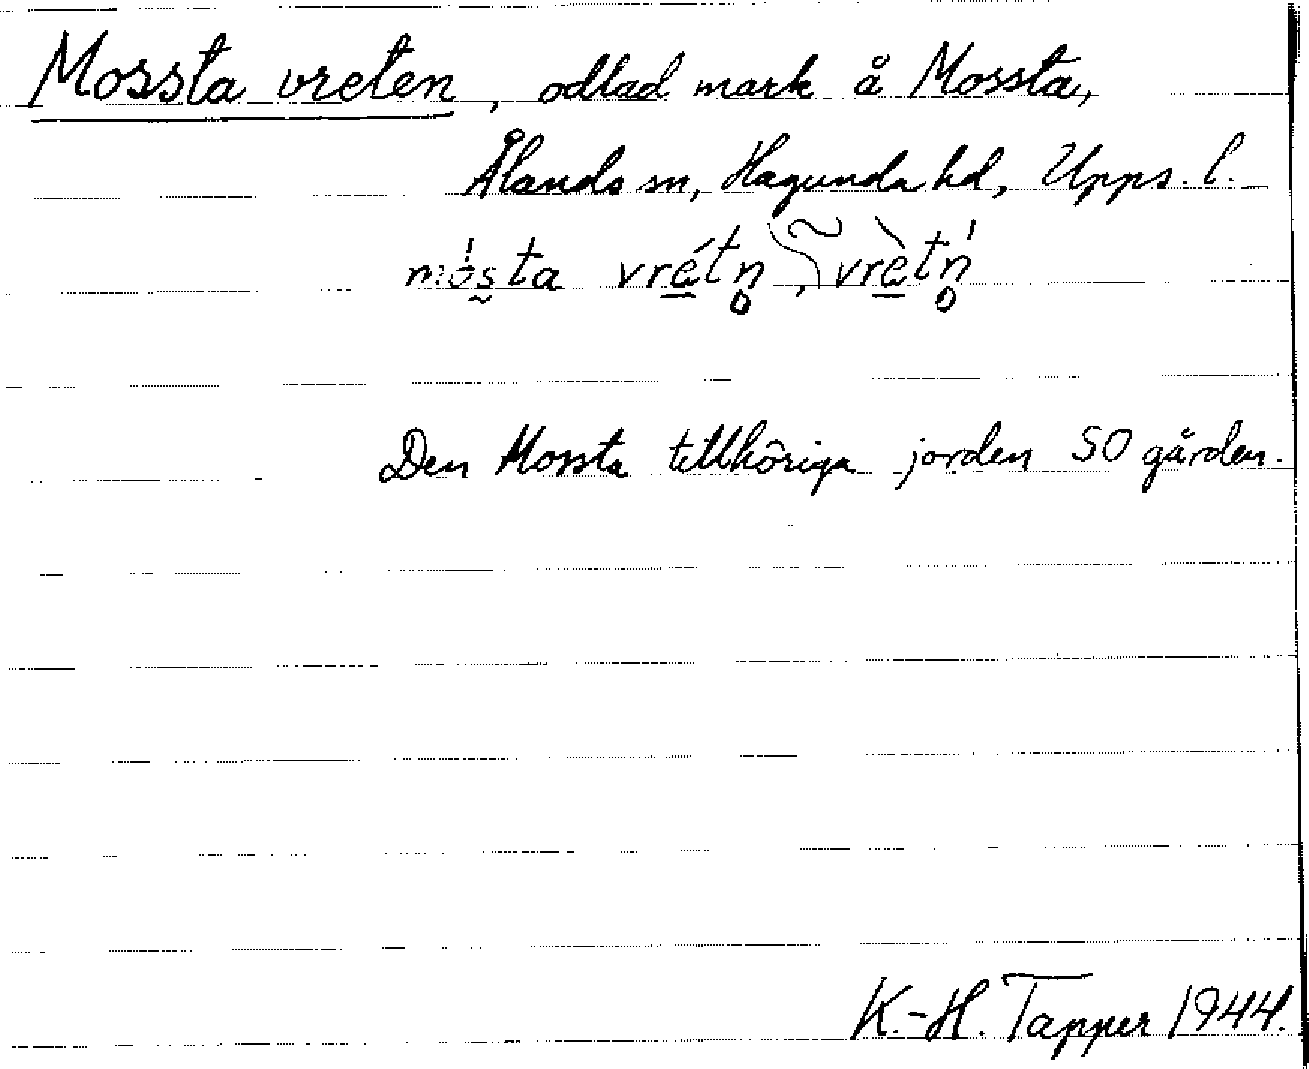 Mossta vreten, odlad mark å Mossta,
Ålands sn, Hagunda hd, Upps. l.
mós̰ta vré̱tn̥, vrè̱tn̥
Den Mossta tillhöriga jorden SO gården.
K.-H. Tapper 1944.